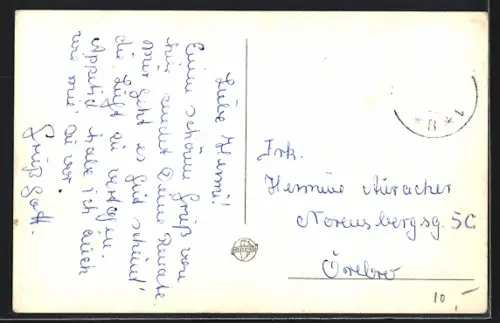 Liebe Hermi!
Einen schönen Gruß von
hier sendet Deine Renate.
Mir geht es gut scheint
die Luft zu vertragen.
Appetit habe ich auch
wie nie zu vor.
Grüß Gott.
Frk.
Hermine Auracher
Norensbergsg. 5C
Örebro
10,-